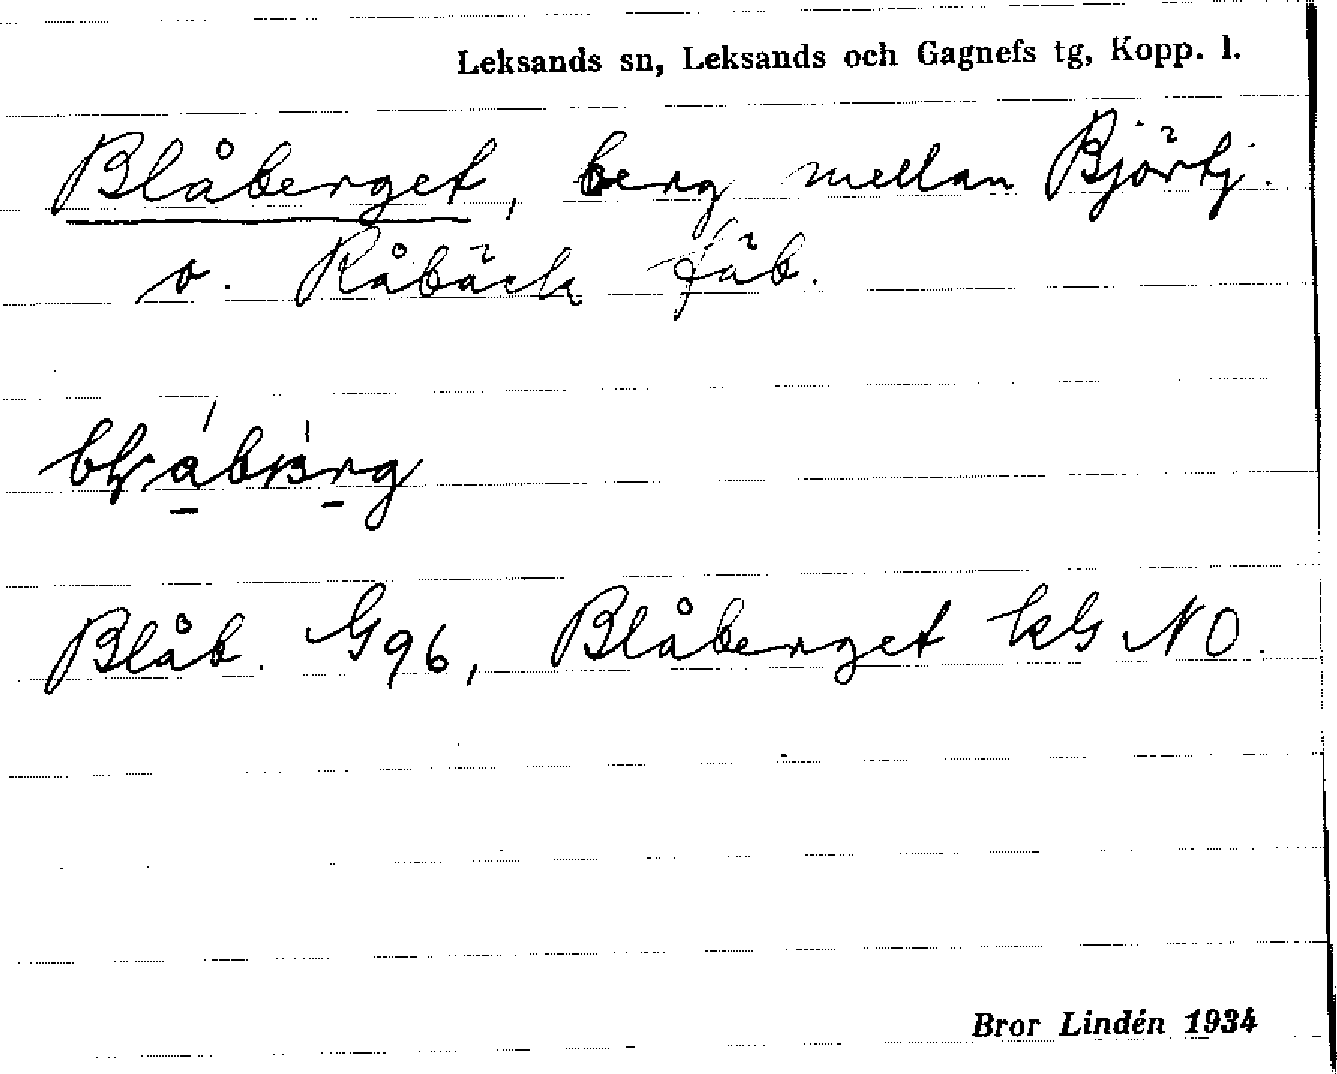 Leksands sn, Leksands och Gagnefs tg, Kopp. l.
Blåberget, berg mellan Björtj.
o. Råbäck fäb.
Blåb. G96, Blåberget kG NO.
Bror Lindén 1934